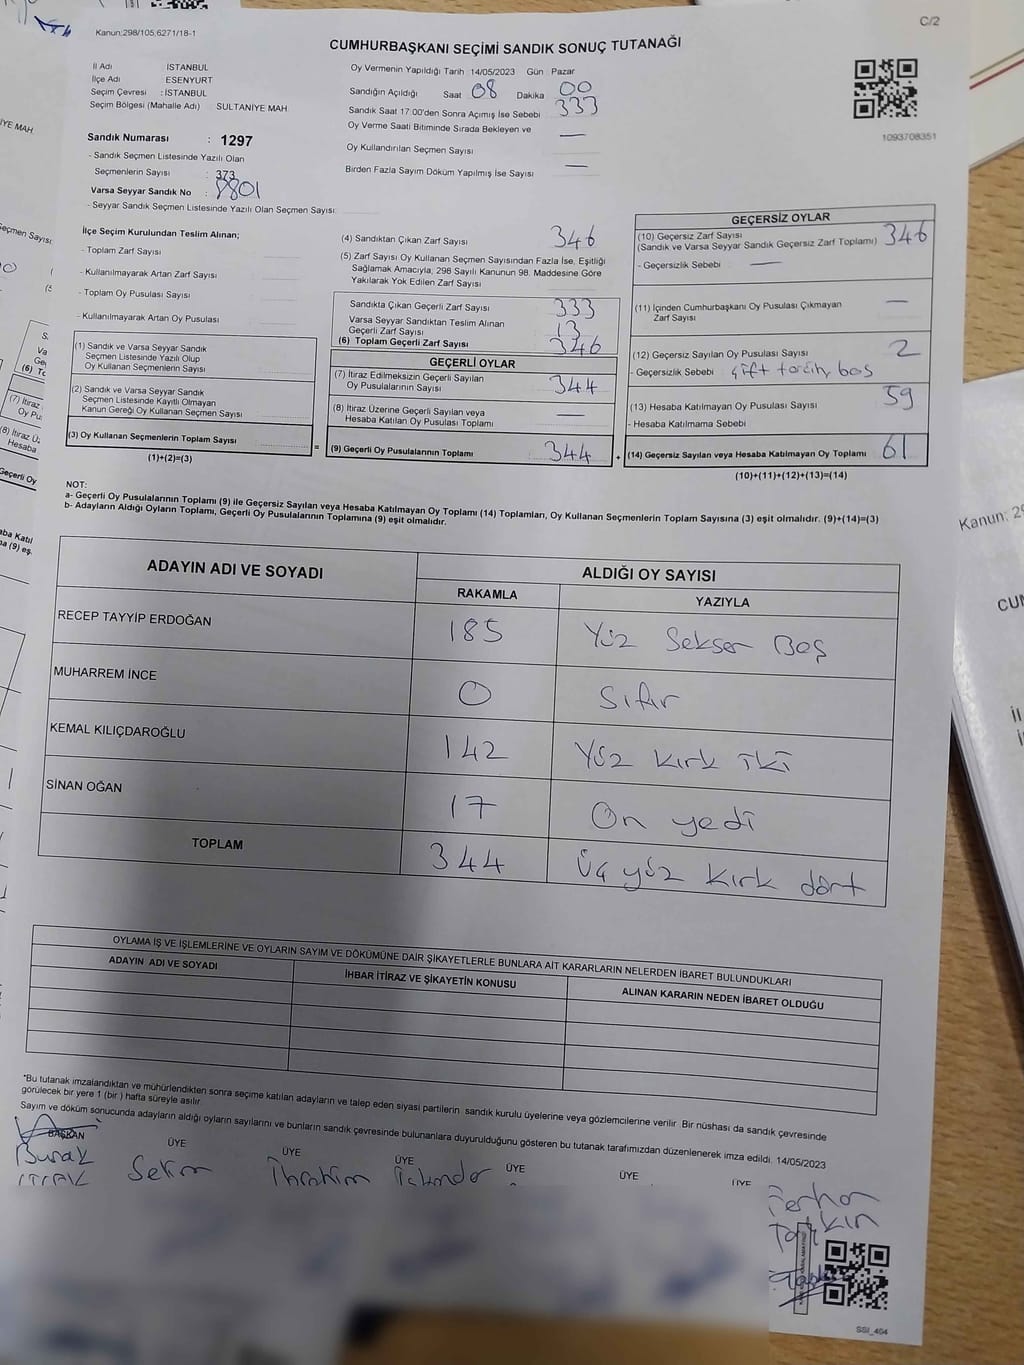 Kanun:298/105,6271/18-1
C/2
CUMHURBAŞKANI SEÇİMİ SANDIK SONUÇ TUTANAĞI
İl Adı İSTANBUL
İlçe Adı ESENYURT
Seçim Çevresi : İSTANBUL
Seçim Bölgesi (Mahalle Adı) SULTANİYE MAH.
Sandık Numarası : 1297
- Sandık Seçmen Listesinde Yazılı Olan
Seçmenlerin Sayısı : 373
Varsa Seyyar Sandık No : 8801
- Seyyar Sandık Seçmen Listesinde Yazılı Olan Seçmen Sayısı:
Oy Vermenin Yapıldığı Tarih 14/05/2023 Gün Pazar
Sandığın Açıldığı Saat 08 Dakika 00
Sandık Saat 17:00'den Sonra Açımış İse Sebebi 333
Oy Verme Saati Bitiminde Sırada Bekleyen ve —
Oy Kullandırılan Seçmen Sayısı
Birden Fazla Sayım Döküm Yapılmış İse Sayısı —
1093708351
İlçe Seçim Kurulundan Teslim Alınan;
- Toplam Zarf Sayısı
- Kullanılmayarak Artan Zarf Sayısı
- Toplam Oy Pusulası Sayısı
- Kullanılmayarak Artan Oy Pusulası
(1) Sandık ve Varsa Seyyar Sandık
Seçmen Listesinde Yazılı Olup
Oy Kullanan Seçmenlerin Sayısı
(2) Sandık ve Varsa Seyyar Sandık
Seçmen Listesinde Kayıtlı Olmayan
Kanun Gereği Oy Kullanan Seçmen Sayısı
(3) Oy Kullanan Seçmenlerin Toplam Sayısı
(1)+(2)=(3)
(4) Sandıktan Çıkan Zarf Sayısı 346
(5) Zarf Sayısı Oy Kullanan Seçmen Sayısından Fazla İse, Eşitliği
Sağlamak Amacıyla; 298 Sayılı Kanunun 98. Maddesine Göre
Yakılarak Yok Edilen Zarf Sayısı
Sandıkta Çıkan Geçerli Zarf Sayısı 333
Varsa Seyyar Sandıktan Teslim Alınan
Geçerli Zarf Sayısı 13
(6) Toplam Geçerli Zarf Sayısı 346
GEÇERLİ OYLAR
(7) İtiraz Edilmeksizin Geçerli Sayılan
Oy Pusulalarının Sayısı 344
(8) İtiraz Üzerine Geçerli Sayılan veya
Hesaba Katılan Oy Pusulası Toplamı —
(9) Geçerli Oy Pusulalarının Toplamı 344
GEÇERSİZ OYLAR
(10) Geçersiz Zarf Sayısı
(Sandık ve Varsa Seyyar Sandık Geçersiz Zarf Toplamı) 346
- Geçersizlik Sebebi —
(11) İçinden Cumhurbaşkanı Oy Pusulası Çıkmayan
Zarf Sayısı —
(12) Geçersiz Sayılan Oy Pusulası Sayısı 2
- Geçersizlik Sebebi çift tercih, boş
(13) Hesaba Katılmayan Oy Pusulası Sayısı 59
- Hesaba Katılmama Sebebi
(14) Geçersiz Sayılan veya Hesaba Katılmayan Oy Toplamı 61
(10)+(11)+(12)+(13)=(14)
NOT:
a- Geçerli Oy Pusulalarının Toplamı (9) ile Geçersiz Sayılan veya Hesaba Katılmayan Oy Toplamı (14) Toplamları, Oy Kullanan Seçmenlerin Toplam Sayısına (3) eşit olmalıdır. (9)+(14)=(3)
b- Adayların Aldığı Oyların Toplamı, Geçerli Oy Pusulalarının Toplamına (9) eşit olmalıdır.
ADAYIN ADI VE SOYADI
ALDIĞI OY SAYISI
RAKAMLA YAZIYLA
RECEP TAYYİP ERDOĞAN 185 Yüz Seksen Beş
MUHARREM İNCE 0 Sıfır
KEMAL KILIÇDAROĞLU 142 Yüz Kırk İki
SİNAN OĞAN 17 On yedi
TOPLAM 344 Üç yüz kırk dört
OYLAMA İŞ VE İŞLEMLERİNE VE OYLARIN SAYIM VE DÖKÜMÜNE DAİR ŞİKAYETLERLE BUNLARA AİT KARARLARIN NELERDEN İBARET BULUNDUKLARI
ADAYIN ADI VE SOYADI İHBAR İTİRAZ VE ŞİKAYETİN KONUSU ALINAN KARARIN NEDEN İBARET OLDUĞU
*Bu tutanak imzalandıktan ve mühürlendikten sonra seçime katılan adayların ve talep eden siyasi partilerin sandık kurulu üyelerine veya gözlemcilerine verilir. Bir nüshası da sandık çevresinde
görülecek bir yere 1 (bir ) hafta süreyle asılır.
Sayım ve döküm sonucunda adayların aldığı oyların sayılarını ve bunların sandık çevresinde bulunanlara duyurulduğunu gösteren bu tutanak tarafımızdan düzenlenerek imza edildi. 14/05/2023
BAŞKAN ÜYE ÜYE ÜYE ÜYE ÜYE ÜYE
Burak Selim İbrahim İskender
Ferhan
SSI_404